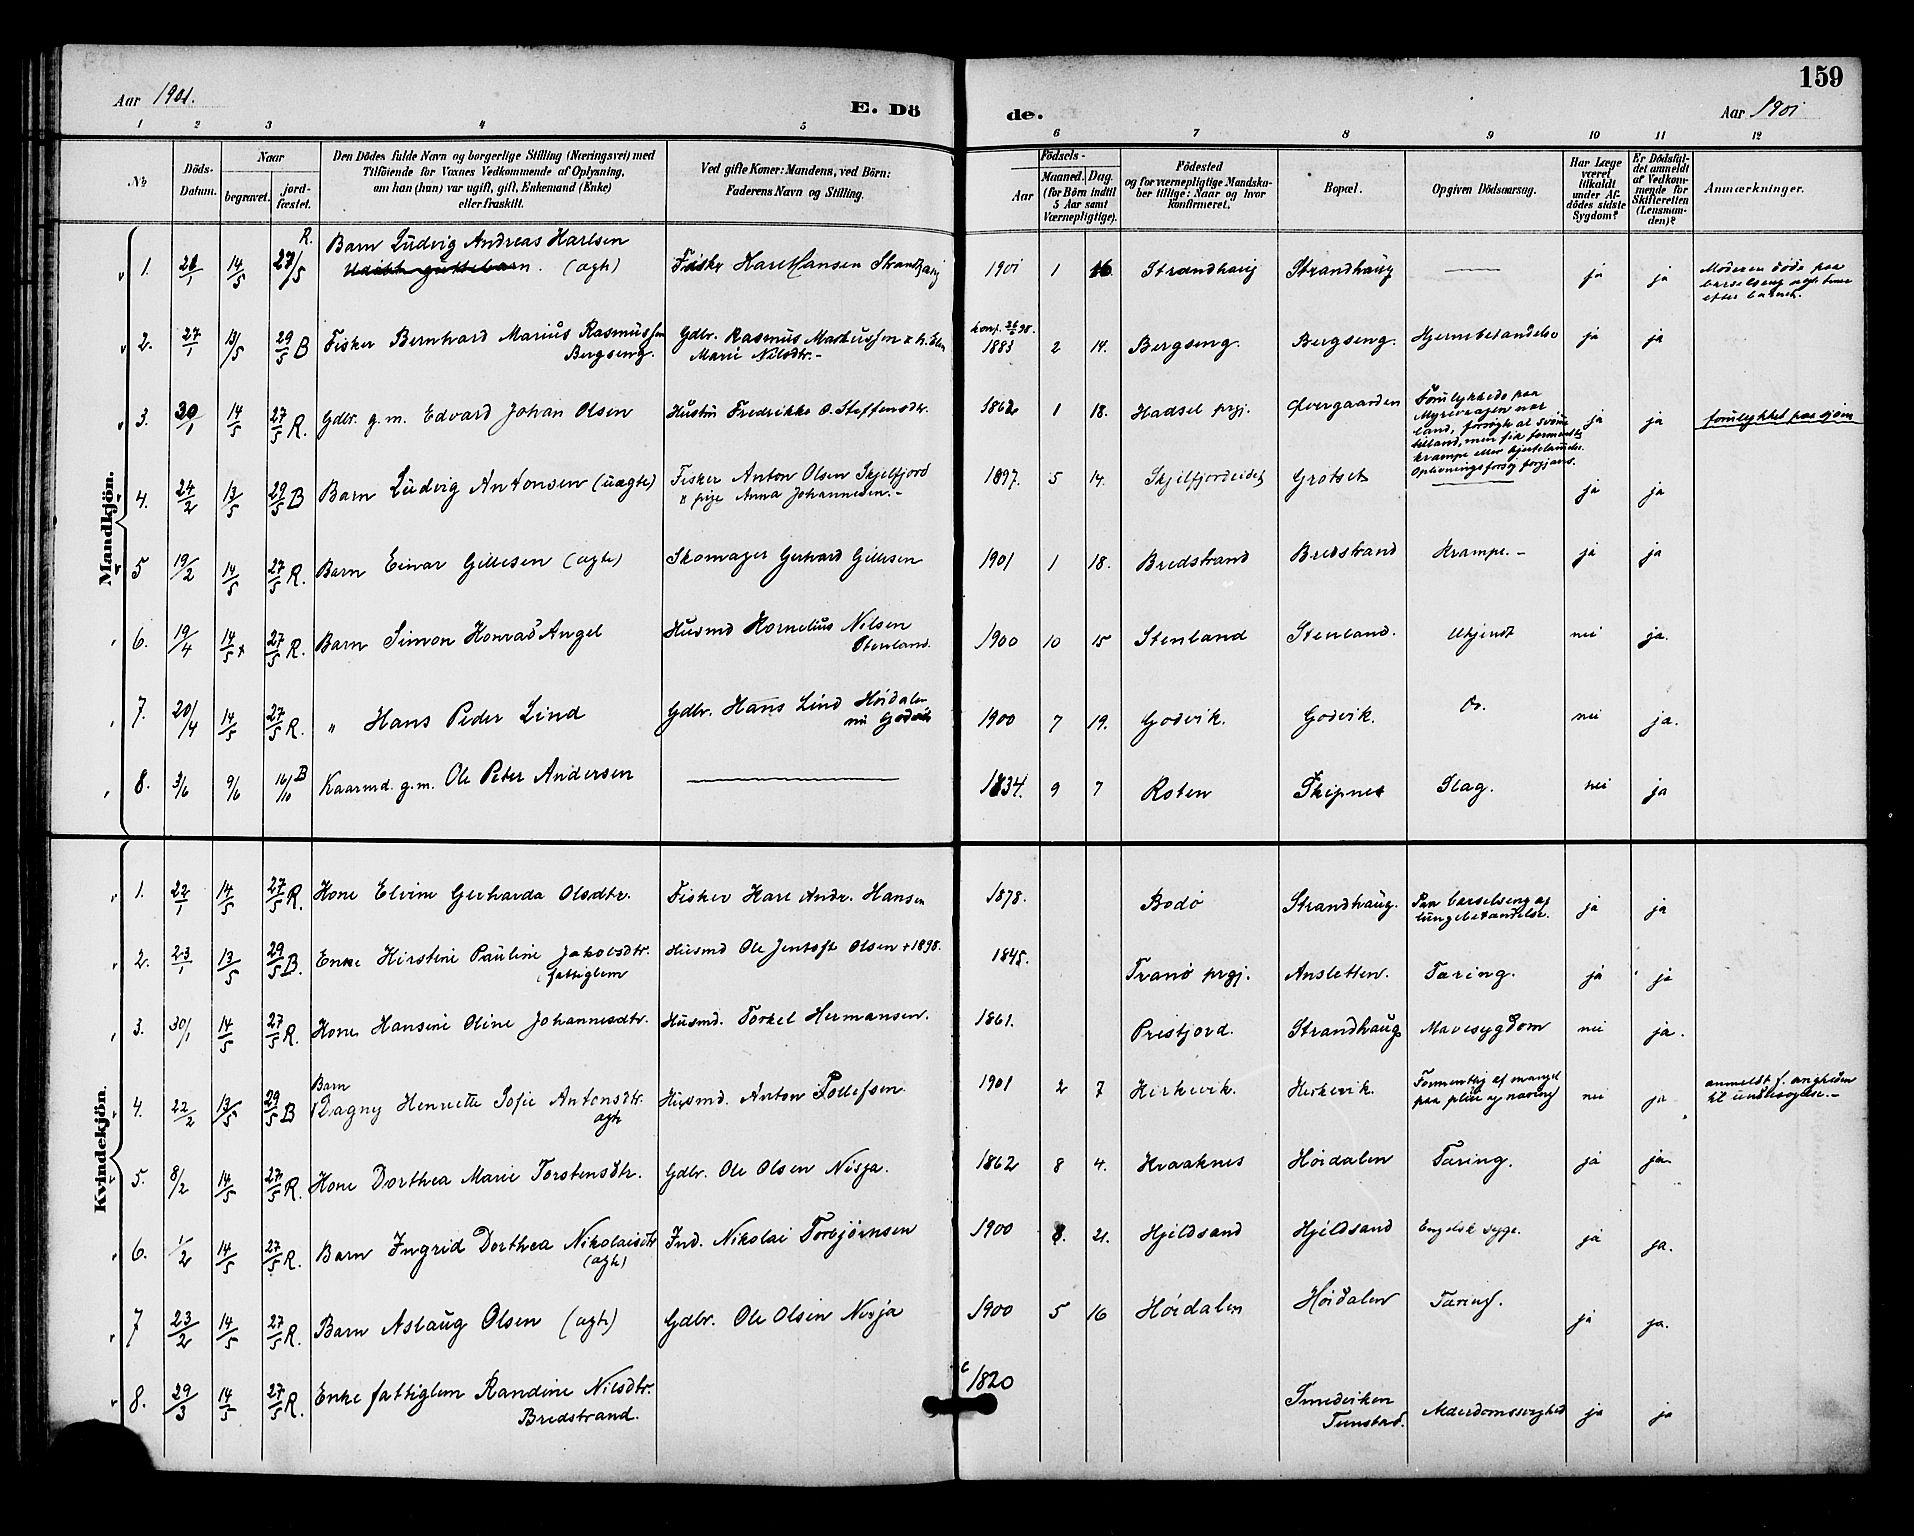 159
Aar 1901.
E. Döde.
Aar 1901
1 2 3 4 5 6 7 8 9 10 11 12
No
Döds-Datum.
Naar
begravet.
jord-fæstet.
Den Dödes fulde Navn og borgerlige Stilling (Næringsvei) med
Tilföiende for Voxnes Vedkommende af Oplysning,
om han (hun) var ugift, gift, Enkemand (Enke)
eller fraskilt.
Ved gifte Koner: Mandens, ved Börn:
Faderens Navn og Stilling.
Födsels-
Aar
Maaned. Dag.
(for Börn indtil
5 Aar samt
Værnepligtige).
Födested
og for værnepligtige Mandska-
ber tillige: Naar og hvor
konfirmeret.
Bopæl.
Opgiven Dödsaarsag.
Har Læge
været
tilkaldt
under Af-
dödes sidste
Sygdom?
Er Dödsfal-
det anmeldt
af Vedkom-
mende for
Skifteretten
(Lensman-
den)?
Anmærkninger.
Mandkjön.
1. 21/1 14/5 27/5 R. Barn Ludvig Andreas Karlsen (ægte) Fisker Karl Hansen Strandhaug 1901 1 16 Strandhaug Strandhaug — ja ja Moderen døde paa
barselseng
efter barnet.
2. 27/1 13/5 29/5 B Fisker Bernhard Marius Rasmussen
Bergseng. Gdbr. Rasmus Markussen
Marie Nilsdtr.- konf. 98.
1883 2 14. Bergseng. Bergseng. Hjernebetændelse ja ja
3. 30/1 14/5 27/5 R. Gdbr. g.m. Edvard Johan Olsen Hustru Fredrikke O. Steffensdtr. 1862 1 18. Hadsel prgj. Øvergaarden Forulykkede paa
Myrevragen nær
land, forsøgte at svømme
tilland, men fik formentlig
krampe eller hjertelammelse.
Oplivningsforsøg forgjæves. ja ja forulykket paa sjøen
4. 24/2 13/5 29/5 B Barn Ludvig Antonsen (uægte) Fisker Anton Olsen Skjelfjord
" pige Anna Johannesen.- 1897. 5 14. Skjelfjordeidet Grotset — ja ja
5 19/2 14/5 27/5 R. Barn Einar Gillesen (ægte) Skomager Gerhard Gillesen 1901 1 18. Bredstrand Bredstrand Krampe.- ja ja
6. 19/4 14/5 x 27/5 R. Barn Simon Konrad Angel Husmd Kornelius Nilsen
Stenland. 1900 10 15 Stenland Stenland. Ukjendt nei ja.
7. 20/4 14/5 27/5 R. " Hans Peder Lind Gdbr. Hans Lind Høidalen
nu Godvik 1900 7 19. Godvik. Godvik. Do. nei ja.
8. 3/6 9/6 16/10 B Kaarmd. g.m. Ole Peter Andersen — 1834. 9 7 Roten Skipnes Slag. nei ja
Kvindekjön.
1. 22/1 14/5 27/5 R. Kone Elvine Gerharda Olsdtr. Fisker Karl Andr. Hansen 1878. Bodø Strandhaug. Paa barselseng af
lungebetændelse. ja ja
2. 23/1 13/5 29/5 B. Enke Kirstine Pauline Jakobsdtr.
fattiglem Husmd Ole Jentoft Olsen + 1898. 1845. Tranø prgj. Ansletten. Tæring. ja ja
3. 30/1 14/5 27/5 R. Kone Hansine Oline Johannesdtr. Husmd. Torkel Hermansen. 1861. Prestjord. Strandhaug Mavesygdom nei ja.
4. 22/2 13/5 29/5 B Barn
Dagny Henrette Sofie Antonsdtr.
ægte Husmd. Anton Tollefsen. 1901 2 7 Kirkevik. Kirkevik. Formentlig af mangel
paa pleie og næring nei ja anmeldt f.
til undersøgelse.-
5. 8/2 14/5 27/5 R. Kone Dorthea Marie Torstensdtr. Gdbr. Ole Olsen Nisja. 1862 8 4. Kraaknes Høidalen Tæring. ja ja
6. 1/2 14/5 27/5 R. Barn Ingrid Dorthea Nikolaisdtr
(ægte) Ind. Nikolai Torbjørnsen 1900 8. 21. Hjeldsand Hjeldsand Engelsk syge. ja ja.
7 23/2 14/5 27/5 R. Barn Aslaug Olsen (ægte) Gdbr. Ole Olsen Nisja 1900 5 16 Høidalen Høidalen Tæring. ja ja.
8. 29/3 14/5 27/5 R. Enke fattiglem Randine Nilsdtr.
Bredstrand. c 1820 Smedviken
Tunstad. Alderdomssvaghed ja ja